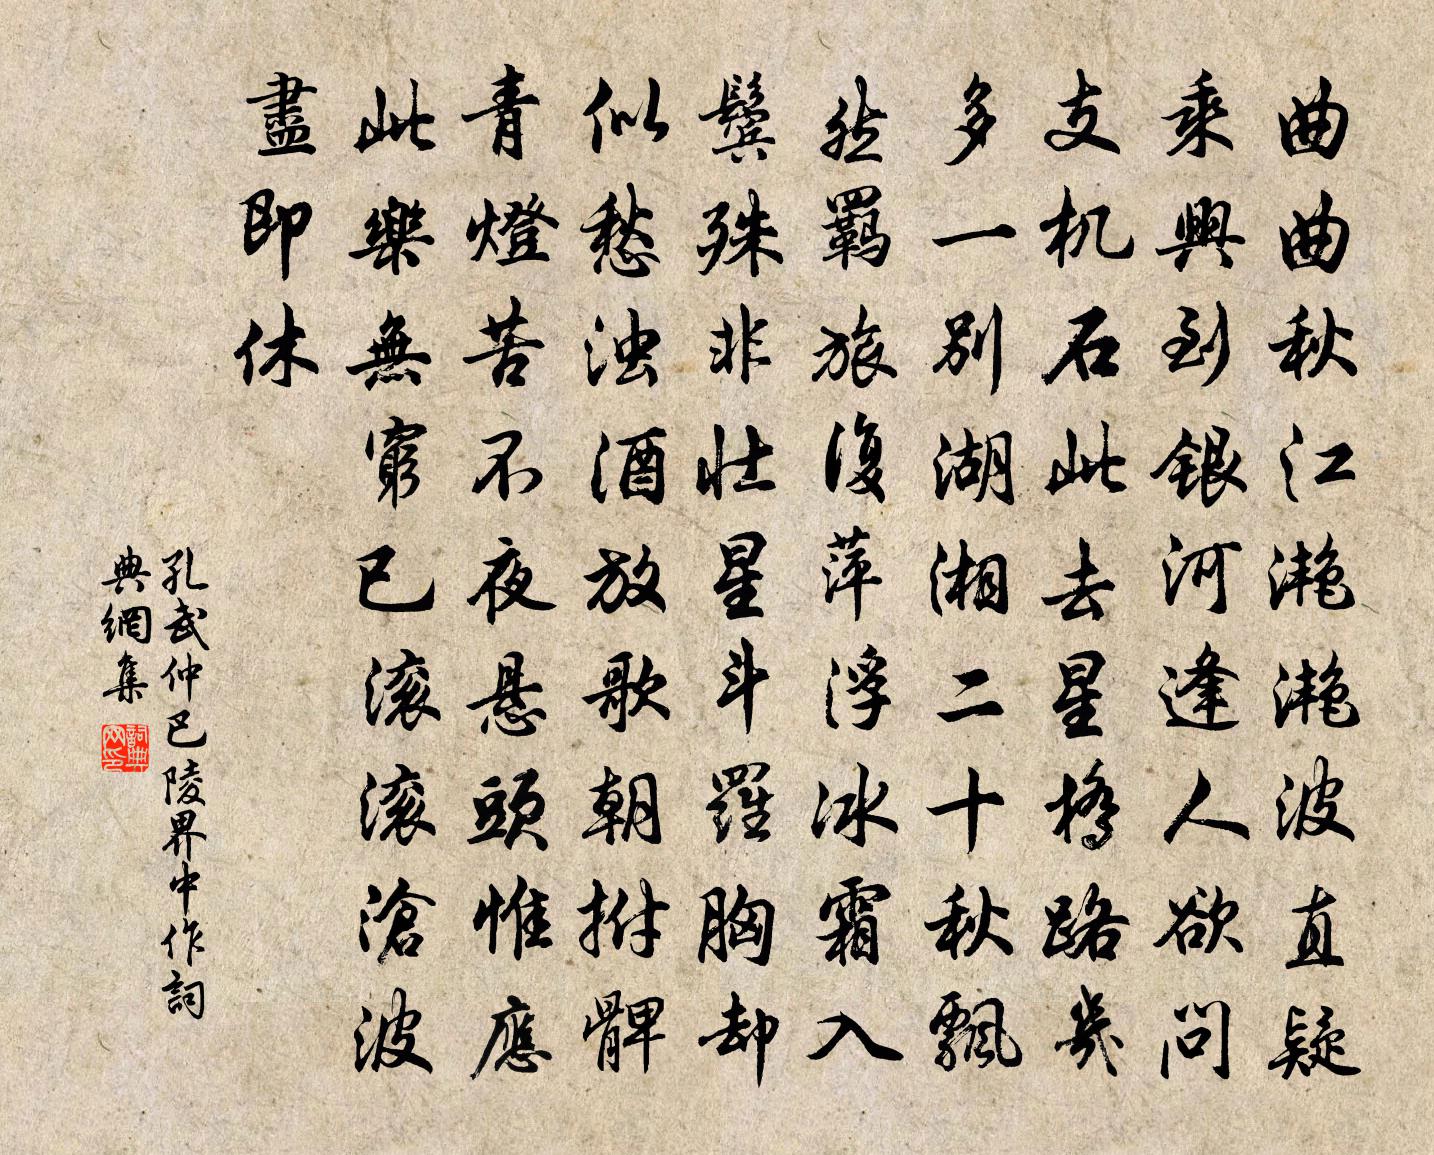 曲曲秋江滟滟波直疑
乘興到銀河逢人欲問
支机石此去星橋路幾
多一别湖湘二十秋飄
然羁旅復萍浮冰霜入
鬓殊非壮星斗羅胸却
似愁浊酒放歌朝拊髀
青燈苦不夜悬頭惟應
此樂無窮已滚滚滄波
盡即休
孔武仲巴陵界中作詞
典網集
詞典网印